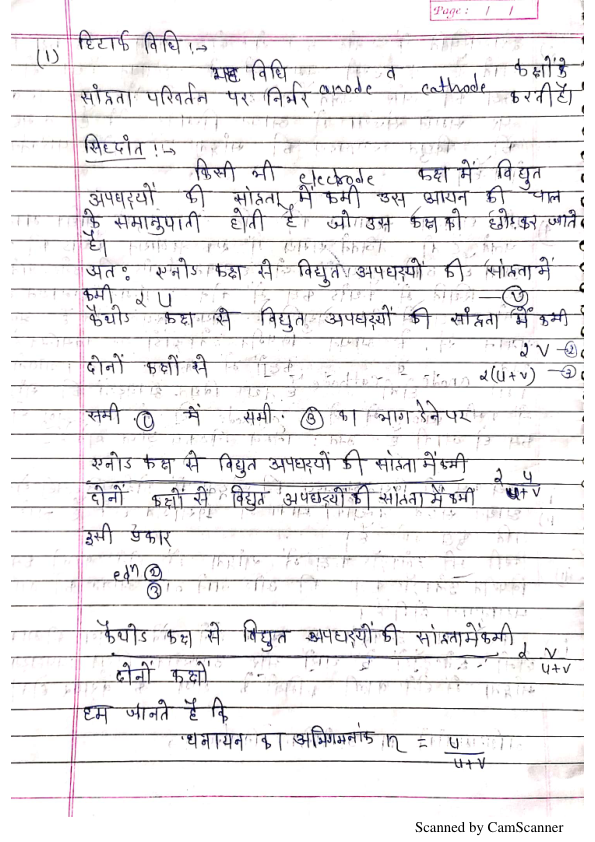 Page: / /
(1) हिटार्फ विधि :→
यह विधि anode व cathode कक्षों के
सांद्रता परिवर्तन पर निर्भर करती है।
सिद्धांत :→
किसी भी electrode कक्ष में विद्युत
अपघट्यों की सांद्रता में कमी उस आयन की चाल
के समानुपाती होती है जो उस कक्ष को छोड़कर जाते
है।
अतः एनोड कक्ष से विद्युत अपघट्यों की सांद्रता में
कमी ∝ U —①
कैथोड कक्ष से विद्युत अपघट्यों की सांद्रता में कमी
∝ V —②
दोनों कक्षों से - - - - - ∝ (u+v) —③
समी ① में समी. ③ का भाग देने पर
एनोड कक्ष से विद्युत अपघट्यों की सांद्रता में कमी ∝ u
दोनों कक्षों से विद्युत अपघट्यों की सांद्रता में कमी u+v
इसी प्रकार
eqn ②
③
कैथोड कक्ष से विद्युत अपघट्यों की सांद्रता में कमी ∝ v
दोनों कक्षों u+v
हम जानते है कि
धनायन का अभिगमनांक n = u
u+v
Scanned by CamScanner